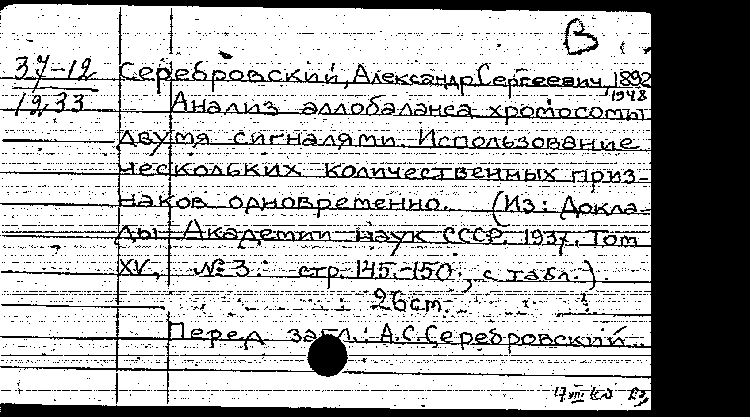 В
37-12
1233
Серебровский, Александр Сергеевич, 1892
1948
Анализ аллобаланса хромосомы
двумя сигналями. Использование
нескольких количественных приз-
наков одновременно. (Из: Докла-
ды Академии наук СССР. 1937. Том
XV, № 3. стр. 145-150, с табл.).
26 cm.
Перед загл.: А.С.Серебровский.
17 VIII